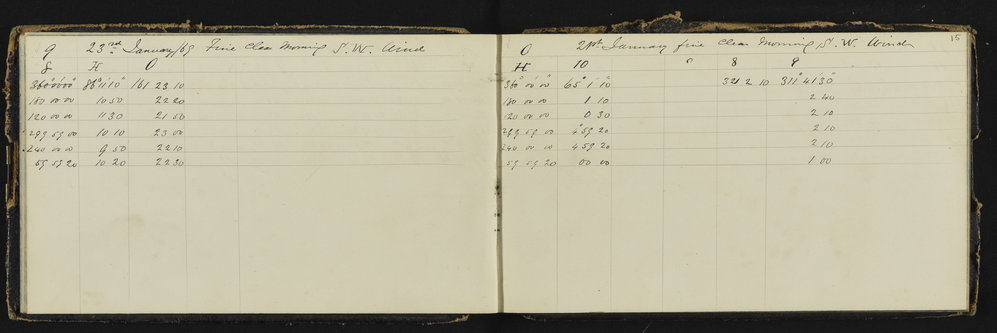 9 23rd January/69 Fine Clear Morning S. W. Wind
8 H O
360°00'00" 86°11'10" 161 23 10
180 00 00 10 50 22 20
120 00 00 11 30 21 50
299 59 00 10 10 23 00
240 00 00 9 50 22 10
59 59 20 10 20 22 30
15
O 21st January fine Clear Morning S. W. Wind
H 10 8 9
360° 00 00 65° 1' 10" 321 2 10 311° 41 30"
180 00 00 1 10 2 40
120 00 00 0 30 2 10
299 59 00 4°59 20 2 10
240 00 00 4 59 20 2 10
59 59 20 00 00 1 00